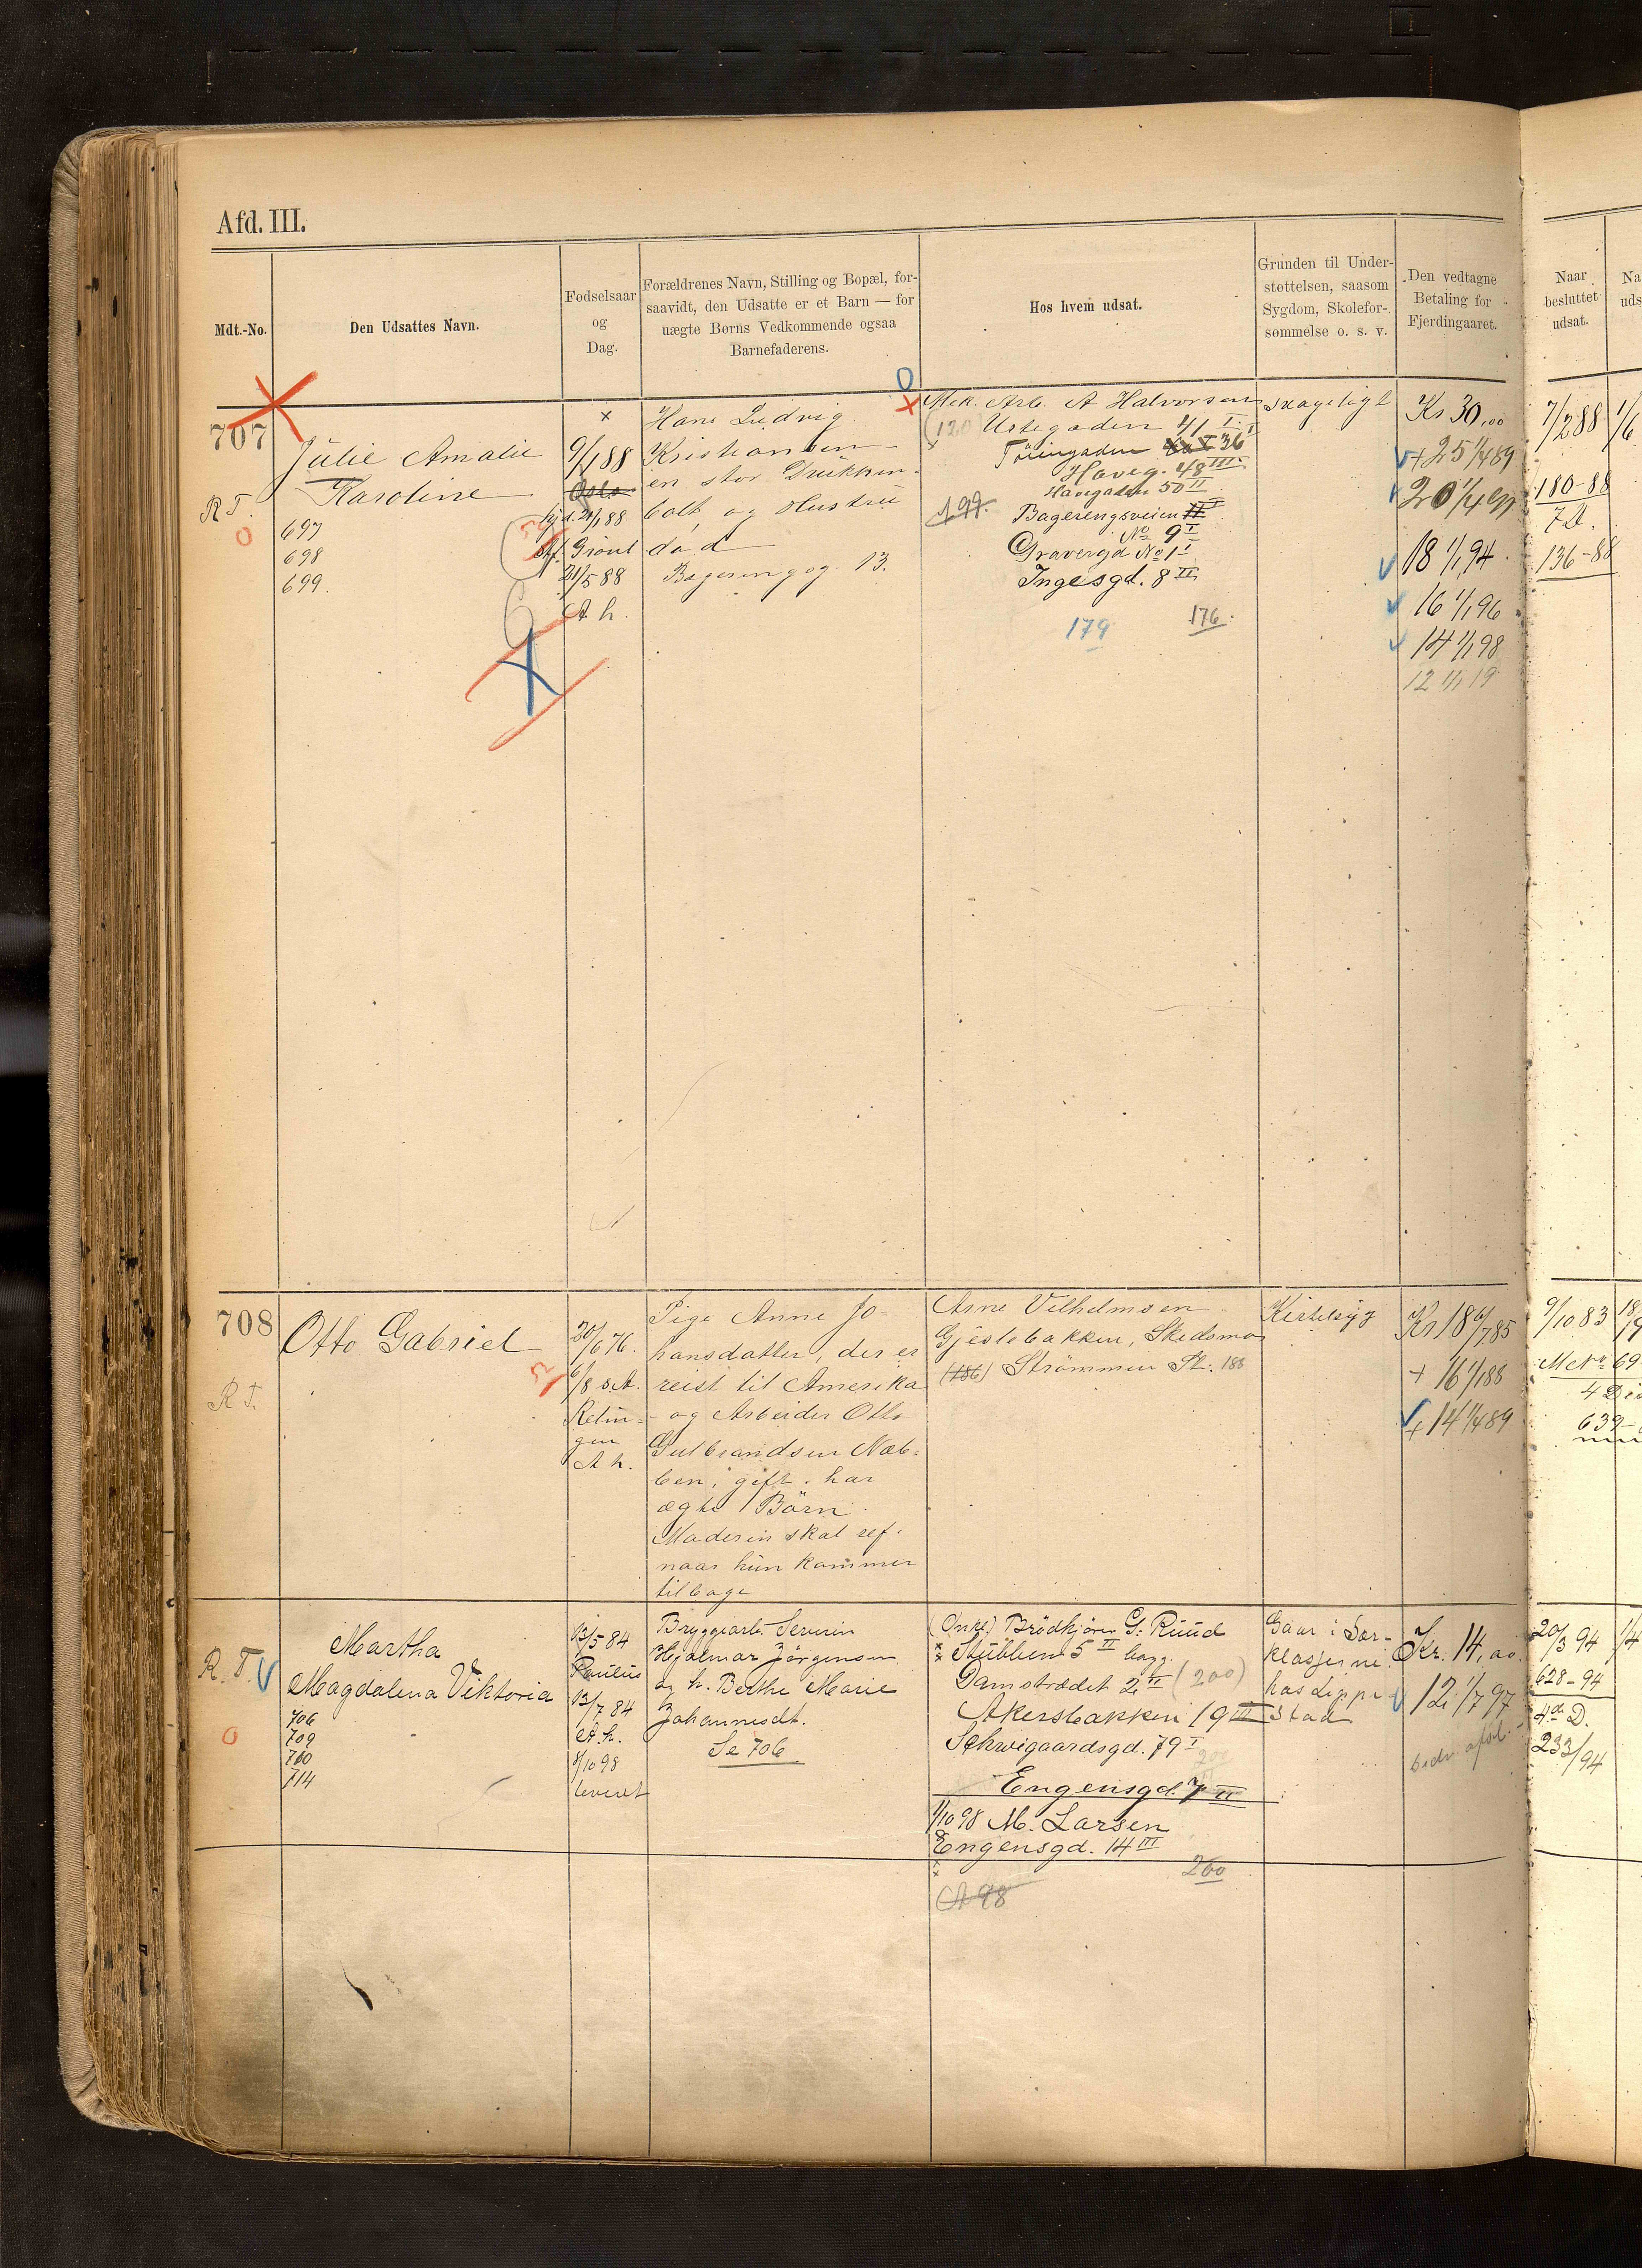 Afd. III.
Mdt.-No.
Den Udsattes Navn.
Fødselsaar
og
Dag.
Forældrenes Navn, Stilling og Bopæl, for-
saavidt, den Udsatte er et Barn — for
uægte Børns Vedkommende ogsaa
Barnefaderens.
Hos hvem udsat.
Grunden til Under-
støttelsen, saasom
Sygdom, Skolefor-
sømmelse o. s. v.
Den vedtagne
Betaling for
Fjerdingaaret.
Naar
besluttet
udsat.
Na
uds
707
R T.
Julie Amalie
Karoline
697
698
699.
9/1 88
Oslo
21/1 88
Grønl
21/5 88
A. h.
Hans Ludvig
Kristiansen
en stor Drikken-
bolt og Hustru
død
Bageringsg. 13.
Mek. Arb. A Halvorsen
(120 Urtegaden 41 I
Töiengaden 36 I
Haveg. 48 III
Havegaden 50 II
199. Bageringsveien
No 9 I
Gravergd No 1 I
Ingesgd. 8 II
179 176.
Kr 30,00
+ 25 1/4 89
20 1/4 91
18 1/1 94.
16 1/1 96
14 1/1 98
12 1/1 19
7/2 88
180-88
7 D.
136-88
1/6
708
R T.
Otto Gabriel
20/6 76.
6/8 s.A.
A h.
Pige Anne Jo-
hansdatter, der er
reist til Amerika
- og Arbeider Otto
Gulbrandsen Næb-
ben, gift. har
ægte Børn.
Moderen skal ref.
naar hun kommer
tilbage
Arne Vilhelmsen
Gjestebakken, Skedsmo
(186) Strömmen St. 188
Kirtelsyg
Kr 18 6/7 85
+ 16 1/1 88
+ 14 1/4 89
9/10 83
4 Di
639-
R. T.
Martha
Magdalena Viktoria
706
709
710
714
13/5 84
Paulus
13/7 84
A. h.
1/10 98
leveret
Bryggearb. Severin
Hjalmar Jörgensen
og h. Berthe Marie
Johannesdt.
Se 706
(Onkel) Brödkjörer G. Ruud
Stubben 5 II bagg.
Damstrædet 2 II (200)
Akersbakken 19 III
Schweigaardsgd. 79 I
Engensgd. 7 II
1/10 98 M. Larsen
Engensgd. 14 III
200
A 98
Gaar i Sær-
klasserne
has Lippe-
stad
Kr. 14,00.
12 1/7 97
20/3 94
628-94
4de D.
233/94